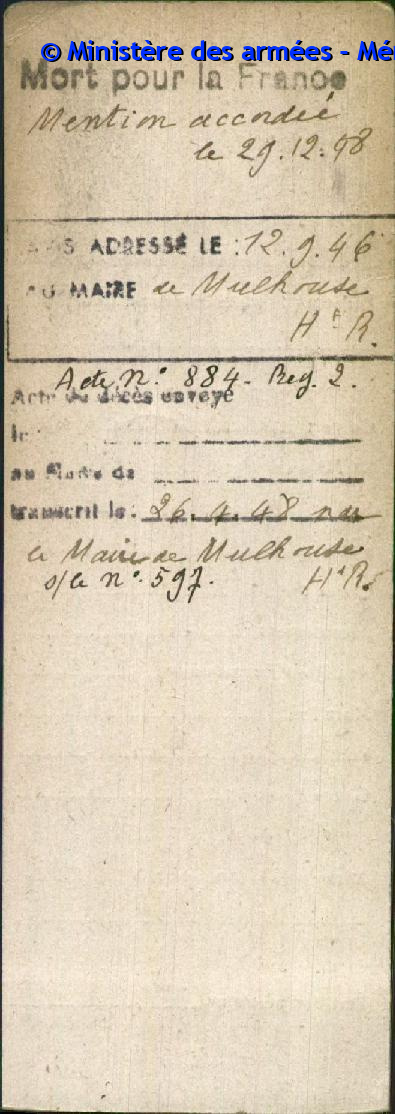 © Ministère des armées - Mé
Mort pour la France
Mention accordée
le 29.12.48
AVIS ADRESSÉ LE : 12.9.46
AU MAIRE de Mulhouse
Ht R.
Acte n° 884. Reg. 2.
Acte de décès envoyé
le
au Maire de
transcrit le : 26.4.48 par
le Maire de Mulhouse
s/le n° 597. Ht R.